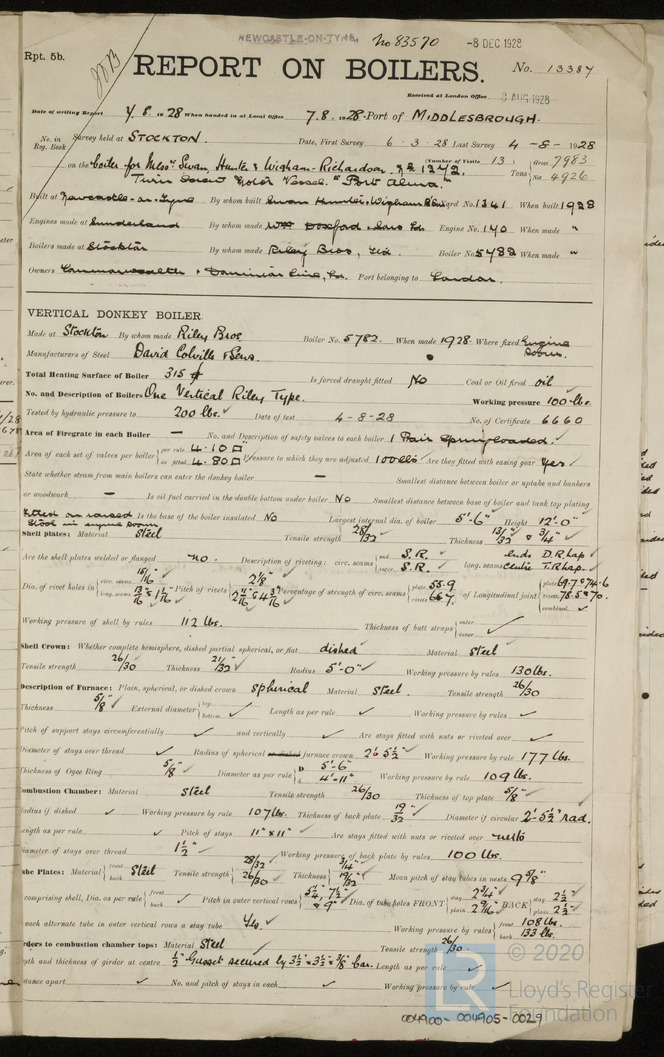 NEWCASTLE-ON-TYNE. No 83570 -8 DEC 1928
Rpt. 5b.
REPORT ON BOILERS. No. 13387
Received at London Office 8 AUG 1928
Date of writing Report 7.8.1928 When handed in at Local Office 7.8.1928 Port of MIDDLESBROUGH.
No. in Reg. Book Survey held at STOCKTON. Date, First Survey 6-3-28 Last Survey 4-8-1928
on the Boiler for Messrs Swan, Hunter & Wigham-Richardson (Number of Visits 13) Tons Gross 7983 Net 4926
Twin Screw Motor Vessel "Port Alma"
Built at Newcastle-on-Tyne By whom built Swan Hunter & Wigham Yard No. 1341 When built 1928
Engines made at Sunderland By whom made Wm Doxford & Sons Ld Engine No. 140 When made "
Boilers made at Stockton By whom made Riley Bros, Ltd. Boiler No. When made "
Owners Commonwealth & Dominion Line, Ld. Port belonging to London.
VERTICAL DONKEY BOILER.
Made at Stockton By whom made Riley Bros. Boiler No. 5782. When made 1928 Where fixed Engine Room.
Manufacturers of Steel David Colville & Sons.
Total Heating Surface of Boiler 315 Is forced draught fitted No Coal or Oil fired oil
No. and Description of Boilers One Vertical Riley Type. Working pressure 100 lbs.
Tested by hydraulic pressure to 200 lbs. Date of test 4-8-28 No. of Certificate 6660
Area of Firegrate in each Boiler — No. and Description of safety valves to each boiler 1 Pair Spring loaded.
Area of each set of valves per boiler per rule 4.10 as fitted 4.80 Pressure to which they are adjusted 100 lbs Are they fitted with easing gear Yes.
State whether steam from main boilers can enter the donkey boiler — Smallest distance between boiler or uptake and bunkers
or woodwork — Is oil fuel carried in the double bottom under boiler No Smallest distance between base of boiler and tank top plating
fitted on raised stool in engine room Is the base of the boiler insulated No Largest internal dia. of boiler 5'-6" Height 12'-0"
Shell plates: Material Steel Tensile strength 28/32 Thickness 13/32 & 3/4"
Are the shell plates welded or flanged no. Description of riveting: circ. seams end S.R. inter. S.R. long. seams Ends D.R. lap Centre T.R. lap.
Dia. of rivet holes in circ. seams 15/16 long. seams 13/16 & 1 1/16 Pitch of rivets 2 1/8" Percentage of strength of circ. seams plate 55.9 rivets 66.7 of Longitudinal joint plate 69.7 & 74.6 rivets 78.5 & 70. combined
Working pressure of shell by rules 112 lbs. Thickness of butt straps outer inner
Shell Crown: Whether complete hemisphere, dished partial spherical, or flat dished Material Steel
Tensile strength 26/30 Thickness 21/32 Radius 5'-0" Working pressure by rules 130 lbs.
Description of Furnace: Plain, spherical, or dished crown spherical Material Steel. Tensile strength 26/30
Thickness 5/8" External diameter top bottom Length as per rule Working pressure by rules
Pitch of support stays circumferentially and vertically Are stays fitted with nuts or riveted over
Diameter of stays over thread Radius of spherical or dished furnace crown 2' 5 1/2" Working pressure by rule 177 lbs.
Thickness of Ogee Ring 5/8" Diameter as per rule D 5'-6" d 4'-11" Working pressure by rule 109 lbs.
Combustion Chamber: Material Steel Tensile strength 26/30 Thickness of top plate 5/8"
Radius if dished Working pressure by rule 107 lbs. Thickness of back plate 19/32 Diameter if circular 2'-5 1/2" rad.
Length as per rule Pitch of stays 11" x 11" Are stays fitted with nuts or riveted over nuts
Diameter of stays over thread 1 1/2" Working pressure of back plate by rules 100 lbs.
Tube Plates: Material front back Steel Tensile strength 28/32 26/30 Thickness 3/4" 19/32 Mean pitch of stay tubes in nests 9 5/8"
comprising shell, Dia. as per rule front back Pitch in outer vertical rows 5 1/4, 7 1/2 & 9" Dia. of tube holes FRONT stay 2 3/4" plain 2 9/16" BACK stay 2 1/2" plain 2 1/2"
each alternate tube in outer vertical rows a stay tube Yes. Working pressure by rules front 108 lbs. back 133 lbs.
Girders to combustion chamber tops: Material Steel Tensile strength 26/30
depth and thickness of girder at centre 1/2" Gusset secured by 3 1/2 x 3 1/2 x 3/8" bar. Length as per rule
distance apart No. and pitch of stays in each Working pressure by rule
© 2020
Lloyd's Register
Foundation
004900-004905-0029